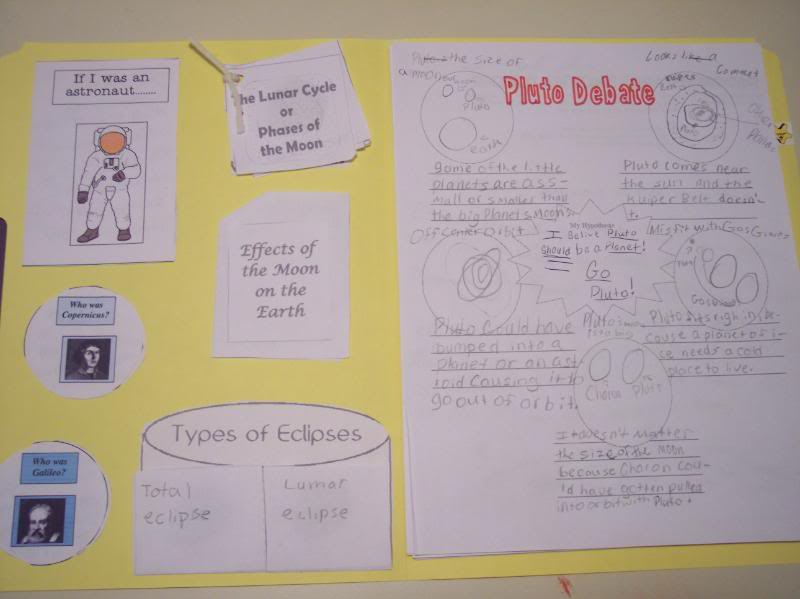 If I was an
astronaut........
The Lunar Cycle
or
Phases of
the Moon
Effects of
the Moon
on the
Earth
Who was
Copernicus?
Who was
Galileo?
Types of Eclipses
Total
eclipse
Lunar
eclipse
Pluto Debate
the size of
a moon
moon
Pluto
earth
Some of the little
planets are as s-
mall or smaller than
the big Planets Moon's
Looks like a
Comet
Pluto comes near
the sun and the
Kuiper Belt doesn'-
t.
Off Center Orbit
Pluto Could have
bumped into a
planet or an ast-
roid Causing it to
go out of orbit.
My Hypothesis
I Belive Pluto
Should be a Planet!
Go
Pluto!
Misfit with Gas Giants
Pluto fits righ in be-
cause a planet of i-
se needs a cold
place to live.
Pluto's moon
is to big
Charon
Pluto
It doesn't Matter
the size of the Moon
because Charon cou-
ld have gotten pulled
into orbit with Pluto